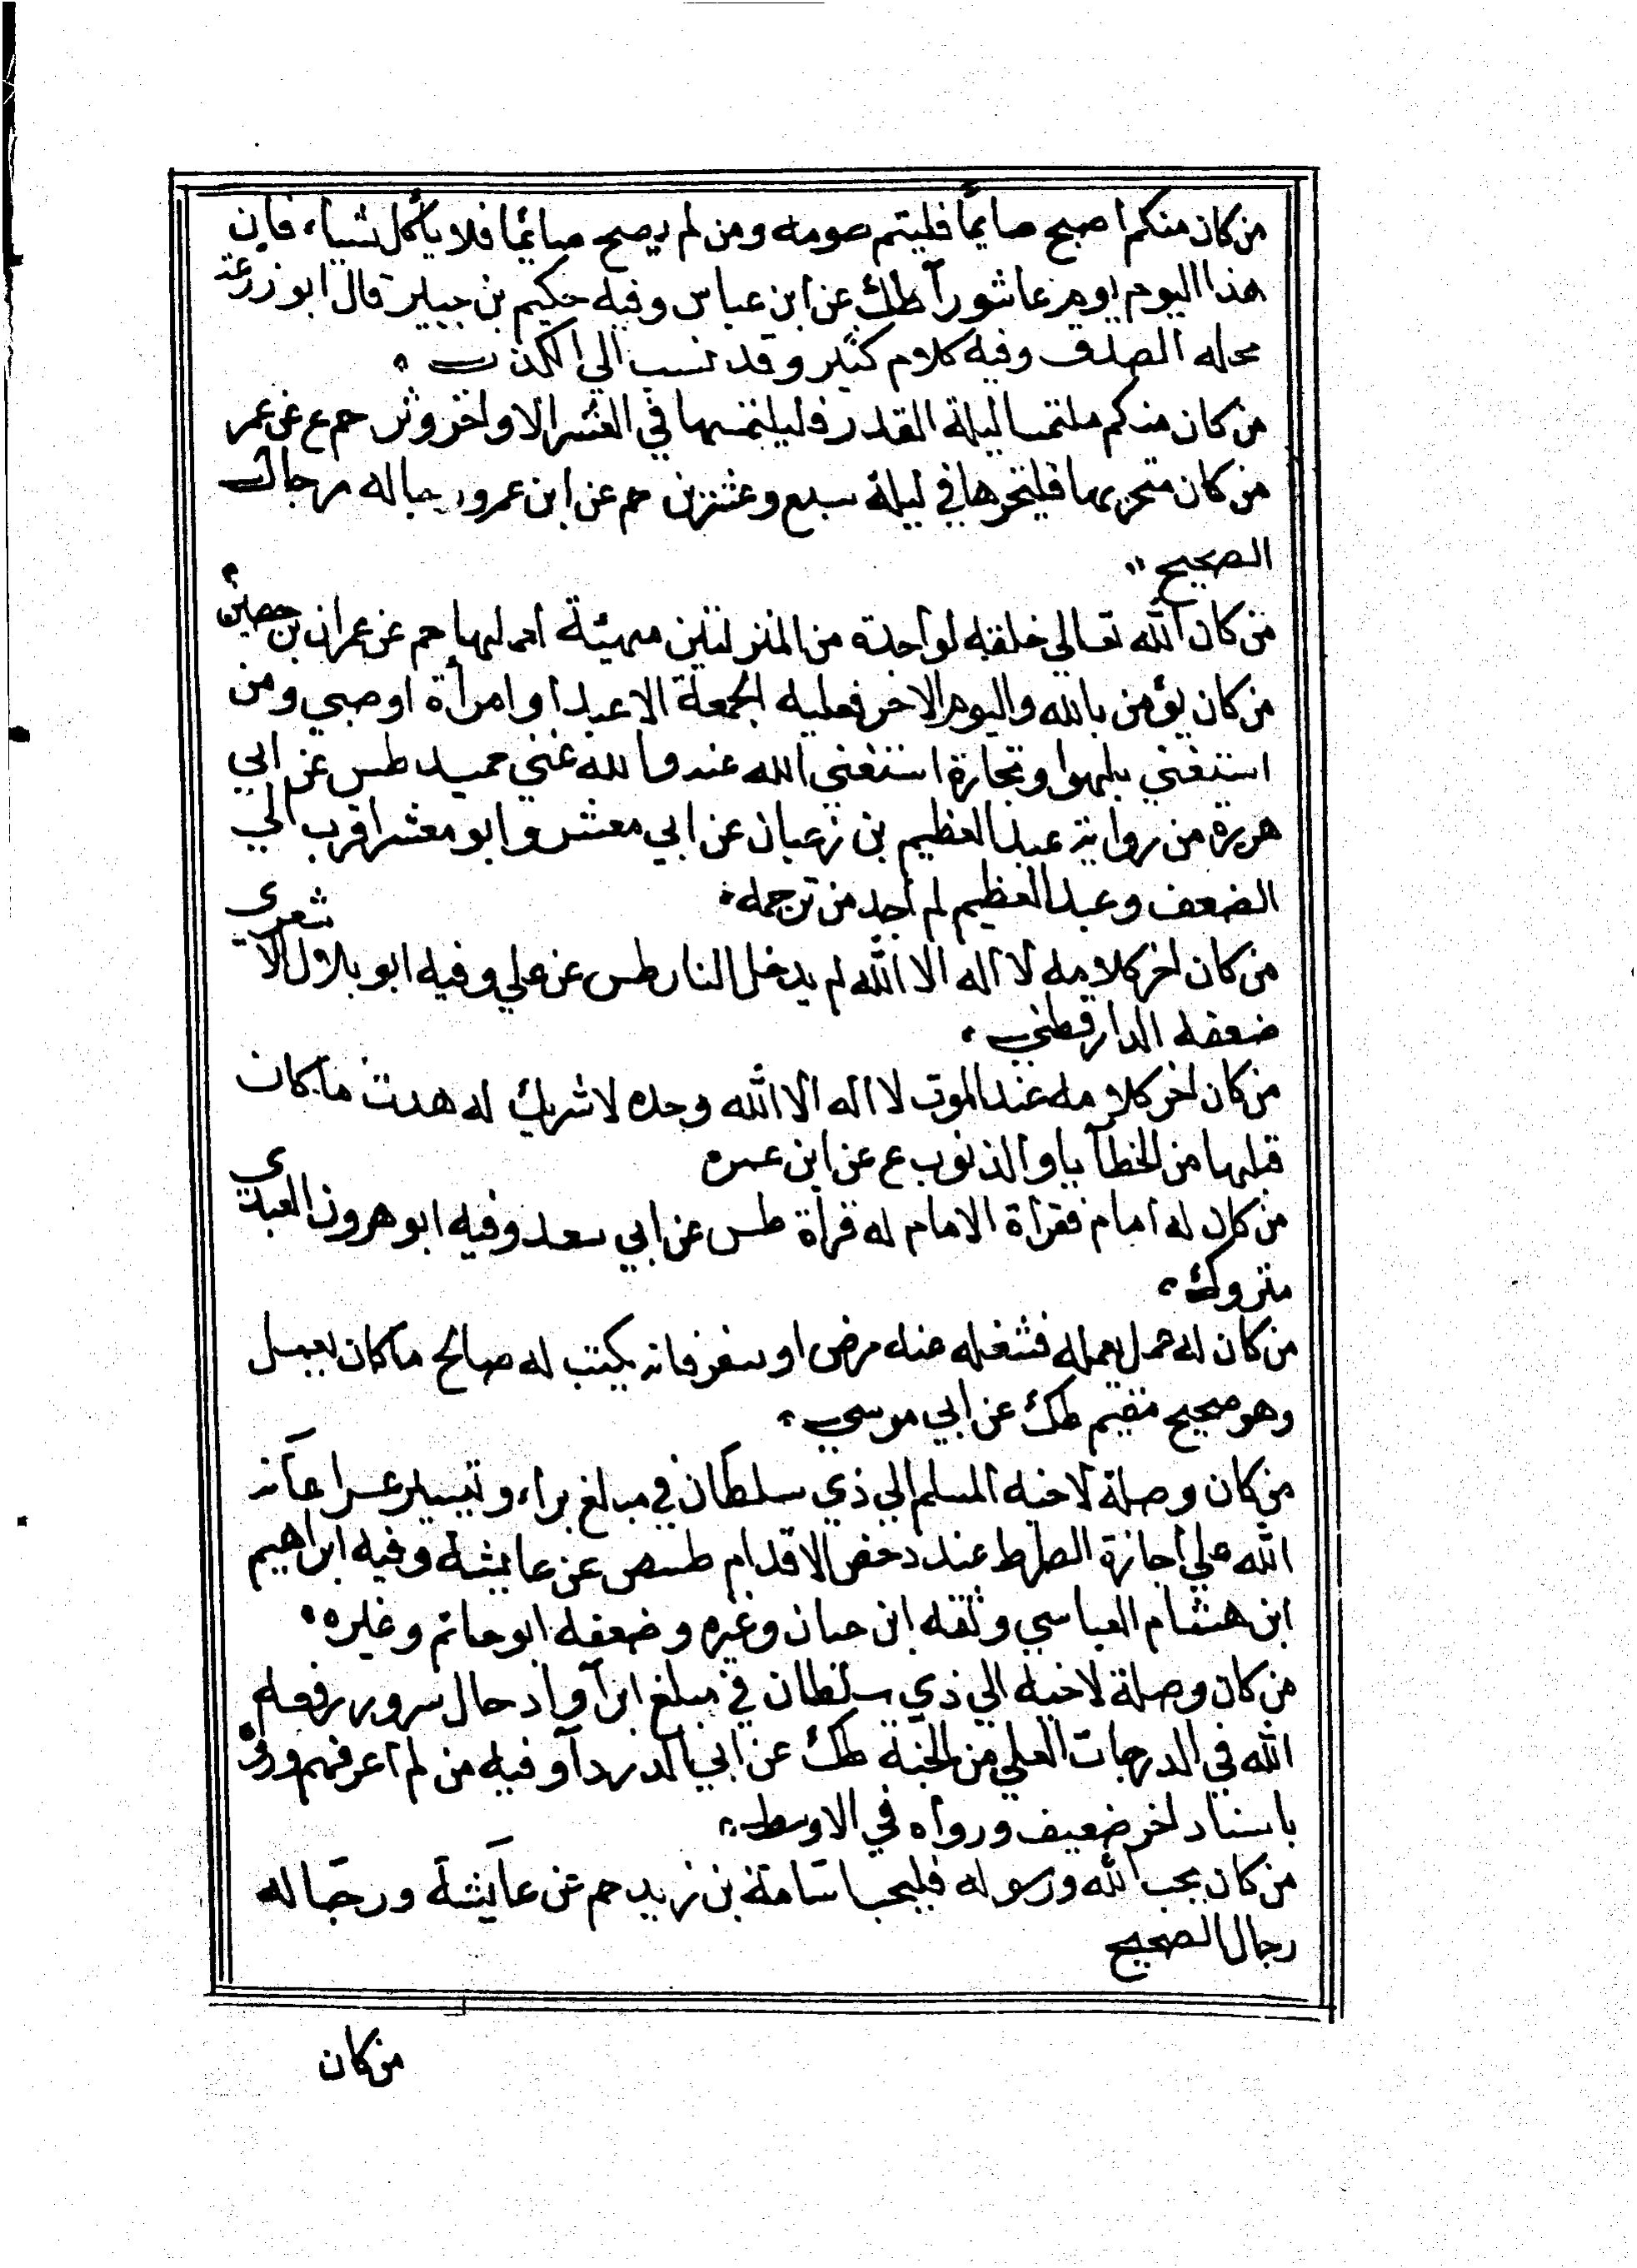 من كان منكم اصبح صائمًا فليتم صومه ومن لم يصبح صائمًا فلا يأكل شياء فإن
هذا اليوم يوم عاشورآ طك عن ابن عباس وفيه حكيم بن جبير قال ابو زرعة
محله الصدق وفيه كلام كثير وقد نسب الي الكذب
من كان منكم ملتمسا ليلة القدر فليلتمسها في العشر الاواخر وتر حم ع عن عمر
من كان متحريها فليتحرها في ليلة سبع وعشرين حم عن ابن عمر ورجاله رجال
الصحيح
من كان الله تعالي خلقه لواحدة من المنزلتين مهيئة احدليها حم عن عمران بن حصين
من كان يؤمن بالله واليوم الاخر فعليه الجمعة الا عبدا وامرأة اوصبي ومن
استغني بلهوا وتجارة استغني الله عنه والله غني حميد طس عن ابي
هريره من رواية عبد العظيم بن رغبان عن ابي معشر وابو معشر اقرب الي
الضعف وعبد العظيم لم أجد من ترجمه
من كان اخر كلامه لا اله الا الله لم يدخل النار طس عن علي وفيه ابو بلال الاشعري
ضعفه الدارقطني
من كان اخر كلامه عند الموت لا اله الا الله وحده لا شريك له هدت ما كان
قبلها من الخطآيا والذنوب ع عن ابن عمره
من كان له امام فقرأة الامام له قرأة طس عن ابي سعد وفيه ابو هرون العبدي
متروك
من كان له عمل يعمله فشغله عنه مرض او سفر فانه يكتب له صالح ما كان يعمل
وهو صحيح مقيم طك عن ابي موسي
من كان وصلة لاخيه المسلم الي ذي سلطان في مبلغ براء وتيسير عسر اعآنه
الله علي اجازة الصراط عند دحض الاقدام طسص عن عايشة وفيه ابراهيم
ابن هشام العباسي وثقه ابن حبان وغيره وضعفه ابو حاتم وغيره
من كان وصلة لاخيه الي ذي سلطان في مبلغ ابرآ وادخال سرور رفعه
الله في الدرجات العلي من الجنة طك عن ابي الدردآ وفيه من لم اعرفهم وروي
باسناد اخر ضعيف ورواه في الاوسط
من كان يحب الله ورسوله فليحب اسامة بن زيد حم عن عآيشة ورجاله
رجال الصحيح
من كان